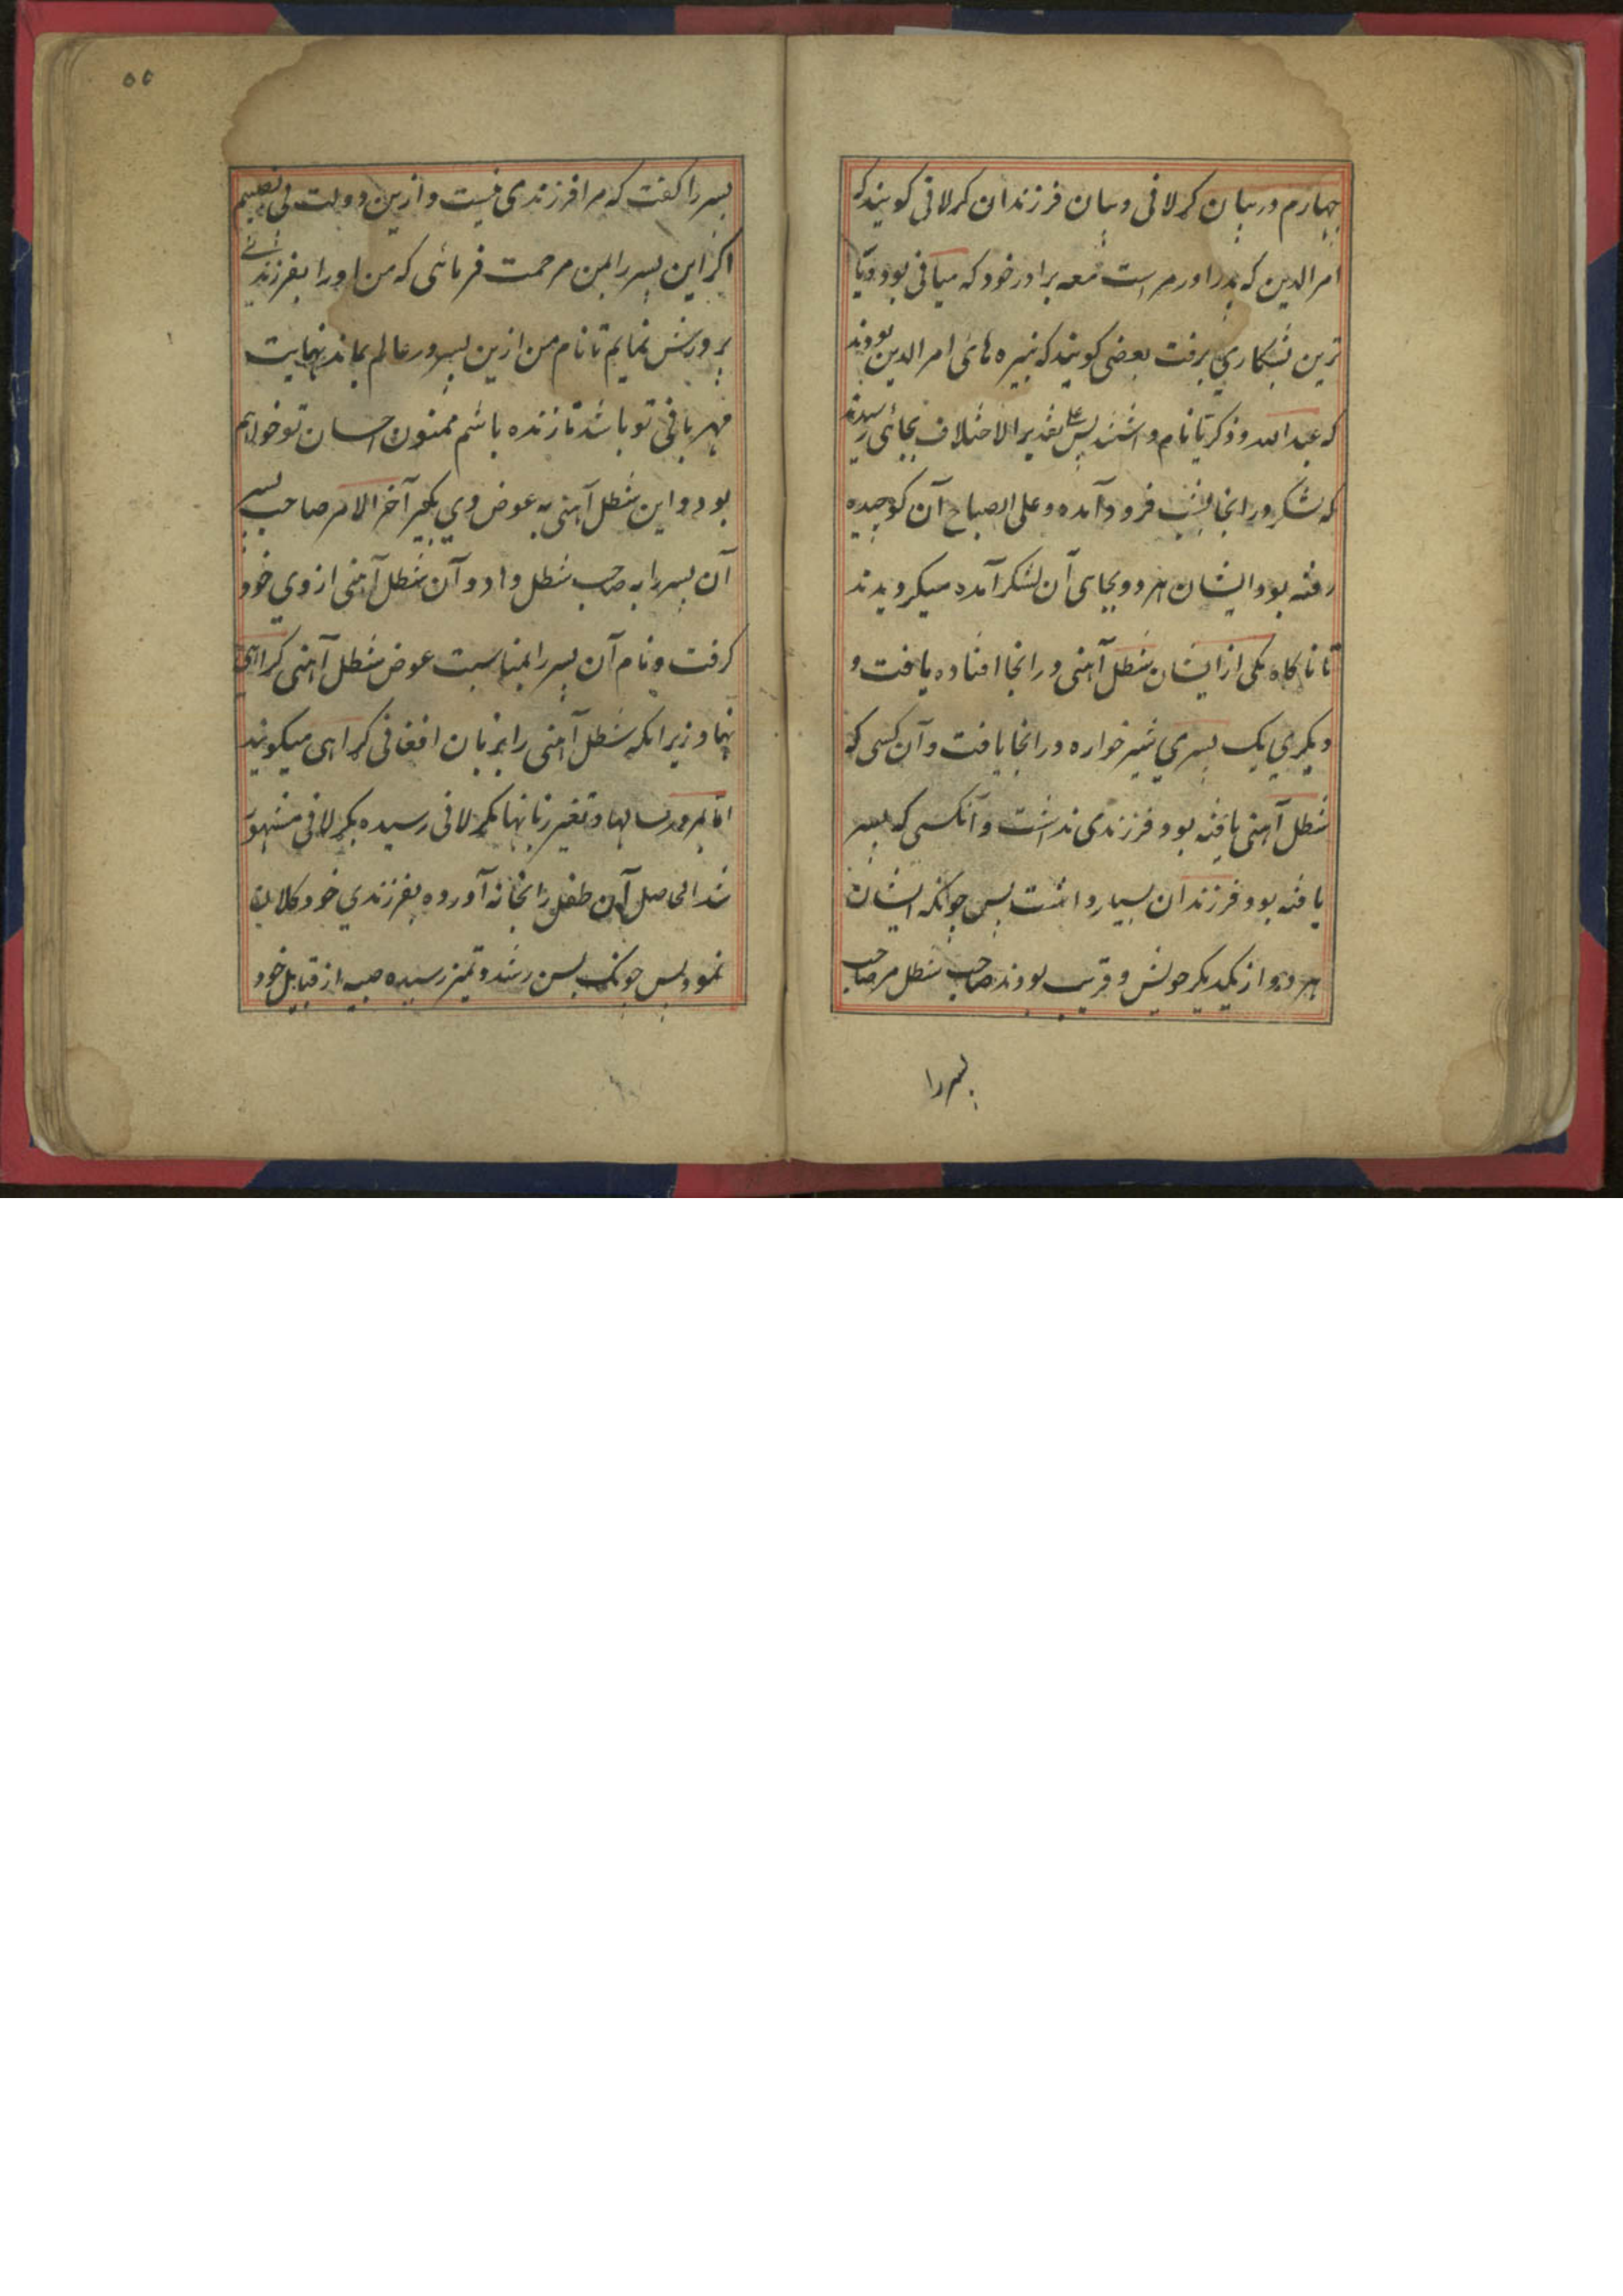 چهارم در بیان کرلانی و بیان فرزندان کرلانی کویند که
امرالدین که پدر اورمر است معه برادر خود که میانی بود و یا
ترین بشکاری برفت بعضی کویند که نبیره های امرالدین بودند
که عبدالله و ذکریا نام داشتند پس علی تقدیر الاختلاف بجائی رسیدند
که لشکر در انجا بشب فرود آمده و علی الصباح آن کوچیده
رفته بود و ایشان هر دو بجای آن لشکر آمده میکردیدند
تا ناکاه یکی از ایشان شطل آهنی در انجا افتاده یافت و
دیکری یک پسری شیرخواره در انجا یافت و آن کسی که
شطل آهنی یافته بود فرزندی نداشت و آنکسی که پسر
یافته بود فرزندان بسیار داشت پس چونکه ایشان
هر دو از یکدیکر خویش و قریب بودند صاحب شطل مر صاحب
پسر را
۵۵
پسر را کفت که مرا فرزندی نیست و ازین دولت بی نصیبم
اکر این پسر را بمن مرحمت فرمائی که من اورا بفرزندی
پرورش نمایم تا نام من ازین پسر در عالم بماند نهایت
مهربانی تو باشد تا زنده باشم ممنون احسان تو خواهم
بود و این شطل آهنی به عوض وی بکیر آخر الامر صاحب پسر
آن پسر را به صاحب شطل داد و آن شطل آهنی از وی خود
کرفت و نام آن پسر را بمناسبت عوض شطل آهنی کراهی
نهاد زیرانکه شطل آهنی را بزبان افغانی کراهی میکویند
اما بمرور سالها و تغیر زبانها بکرلانی رسیده بکرلانی مشهور
شد الحاصل آن طفل را بخانه آورده بفرزندی خود کلان
نمود پس چونکه بسن رشد و تمیز رسیده صبیه از قبایل خود